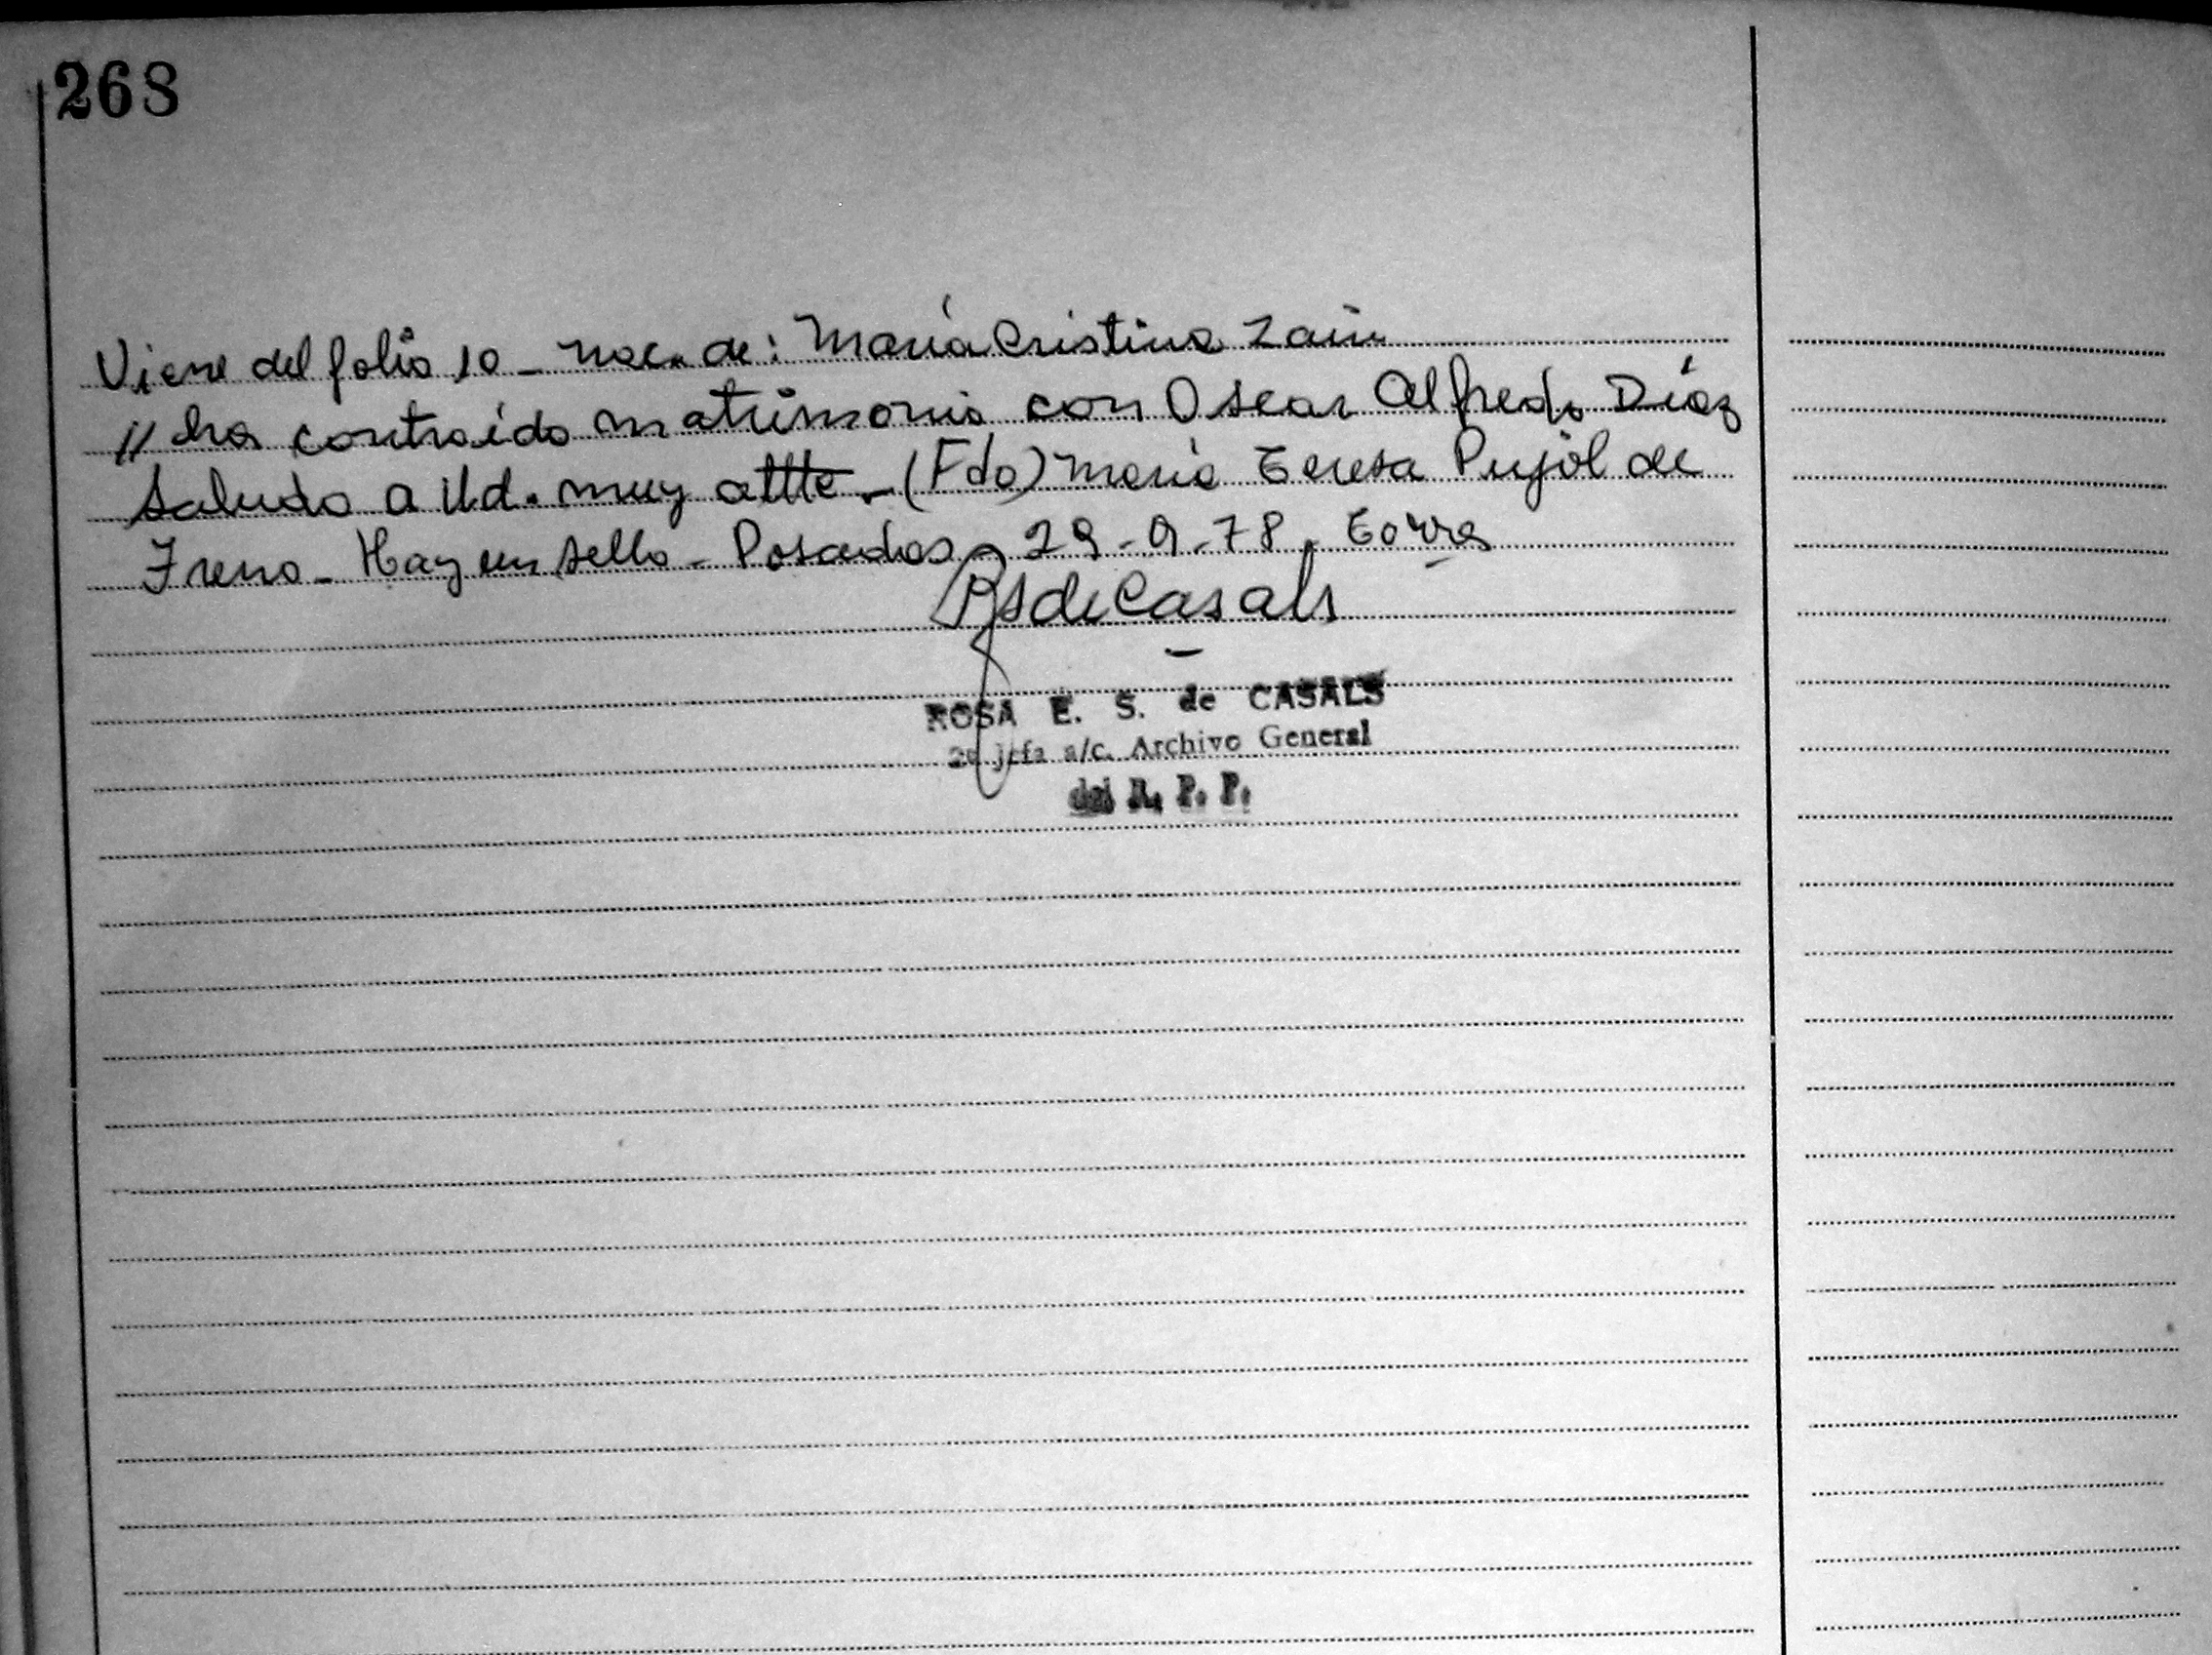 268
Viene del folio 10 - nac. de: María Cristina Zain
// ha contraído matrimonio con Oscar Alfredo Díaz
Saludo a Ud. muy attte - (Fdo) María Teresa Pujol de
Freno - Hay un sello - Posadas 29-9-78. Torres
RSdeCasals
ROSA E. S. de CASALS
jefa a/c. Archivo General
del R. P. P.